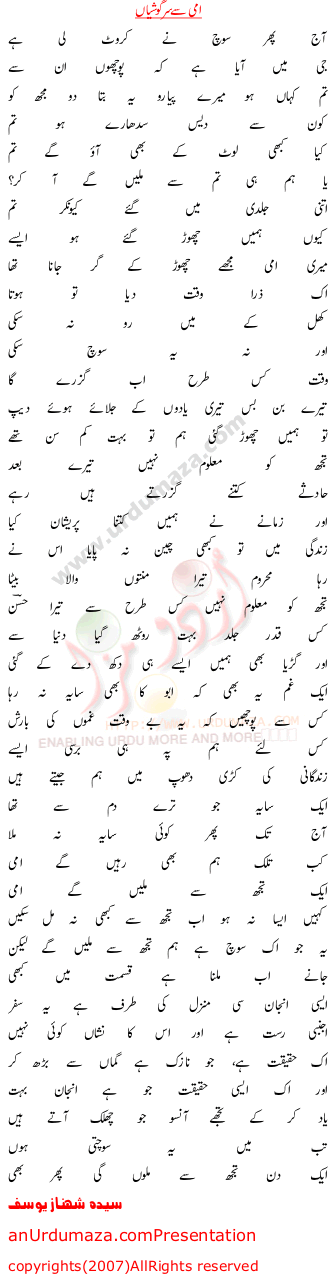 امی سے سرگوشیاں
آج پھر سوچ نے کروٹ لی ہے
جی میں آیا ہے کہ پوچھوں ان سے
تم کہاں ہو میرے پیارو یہ بتا دو مجھ کو
کون سے دیس سدھارے ہو تم
کیا کبھی لوٹ کے بھی آؤ گے تم
یا ہم ہی تم سے ملیں گے آ کر؟
اتنی جلدی میں گئے کیونکر تم
کیوں ہمیں چھوڑ گئے ہو ایسے
میری امی مجھے چھوڑ کے گر جانا تھا
اک ذرا وقت دیا تو ہوتا
کھل کے میں رو نہ سکی
اور نہ یہ سوچ سکی
وقت کس طرح اب گزرے گا
تیرے بن بس تیری یادوں کے جلائے ہوئے دیپ
تو ہمیں چھوڑ گئی ہم تو بہت کم سن تھے
تجھ کو معلوم نہیں تیرے بعد
حادثے کتنے گزرتے ہیں رہے
اور زمانے نے ہمیں کتنا پریشان کیا
زندگی میں تو کبھی چین نہ پایا اس نے
رہا محروم تیرا منتوں والا بیٹا
تجھ کو معلوم نہیں کس طرح سے تیرا حسن
کس قدر جلد بہت روٹھ گیا دنیا سے
اور گڑیا بھی ہمیں ایسے ہی دکھ دے کے گئی
ایک غم یہ بھی کہ ابو کا بھی سایہ نہ رہا
کس سے پوچھیں کہ یہ بے وقت غموں کی بارش
کس لئے ہم پہ ہی برسی ایسے
زندگانی کی کڑی دھوپ میں ہم جیتے ہیں
ایک سایہ جو ترے دم سے تھا
آج تک پھر کوئی سایہ نہ ملا
کب تلک ہم بھی رہیں گے امی
ایک تجھ سے ملیں گے امی
کہیں ایسا نہ ہو اب تجھ سے کبھی نہ مل سکیں
یہ جو اک سوچ ہے ہم تجھ سے ملیں گے لیکن
جانے اب ملنا ہے قسمت میں کبھی
ایسی انجان سی منزل کی طرف ہے یہ سفر
اجنبی رستہ ہے اور اس کا نشاں کوئی نہیں
اک حقیقت ہے، جو نازک ہے گماں سے بڑھ کر
اور اک ایسی حقیقت جو ہے انجان بہت
یاد کر کے تجھے آنسو جو چھلک آتے ہیں
تب میں یہ سوچتی ہوں
ایک دن تجھ سے ملوں گی پھر بھی
سیدہ شہناز یوسف
anUrdumaza.comPresentation
copyrights(2007)AllRights reserved
www.urdumaza.com
اردو مزا
ENABLING URDU MORE AND MORE